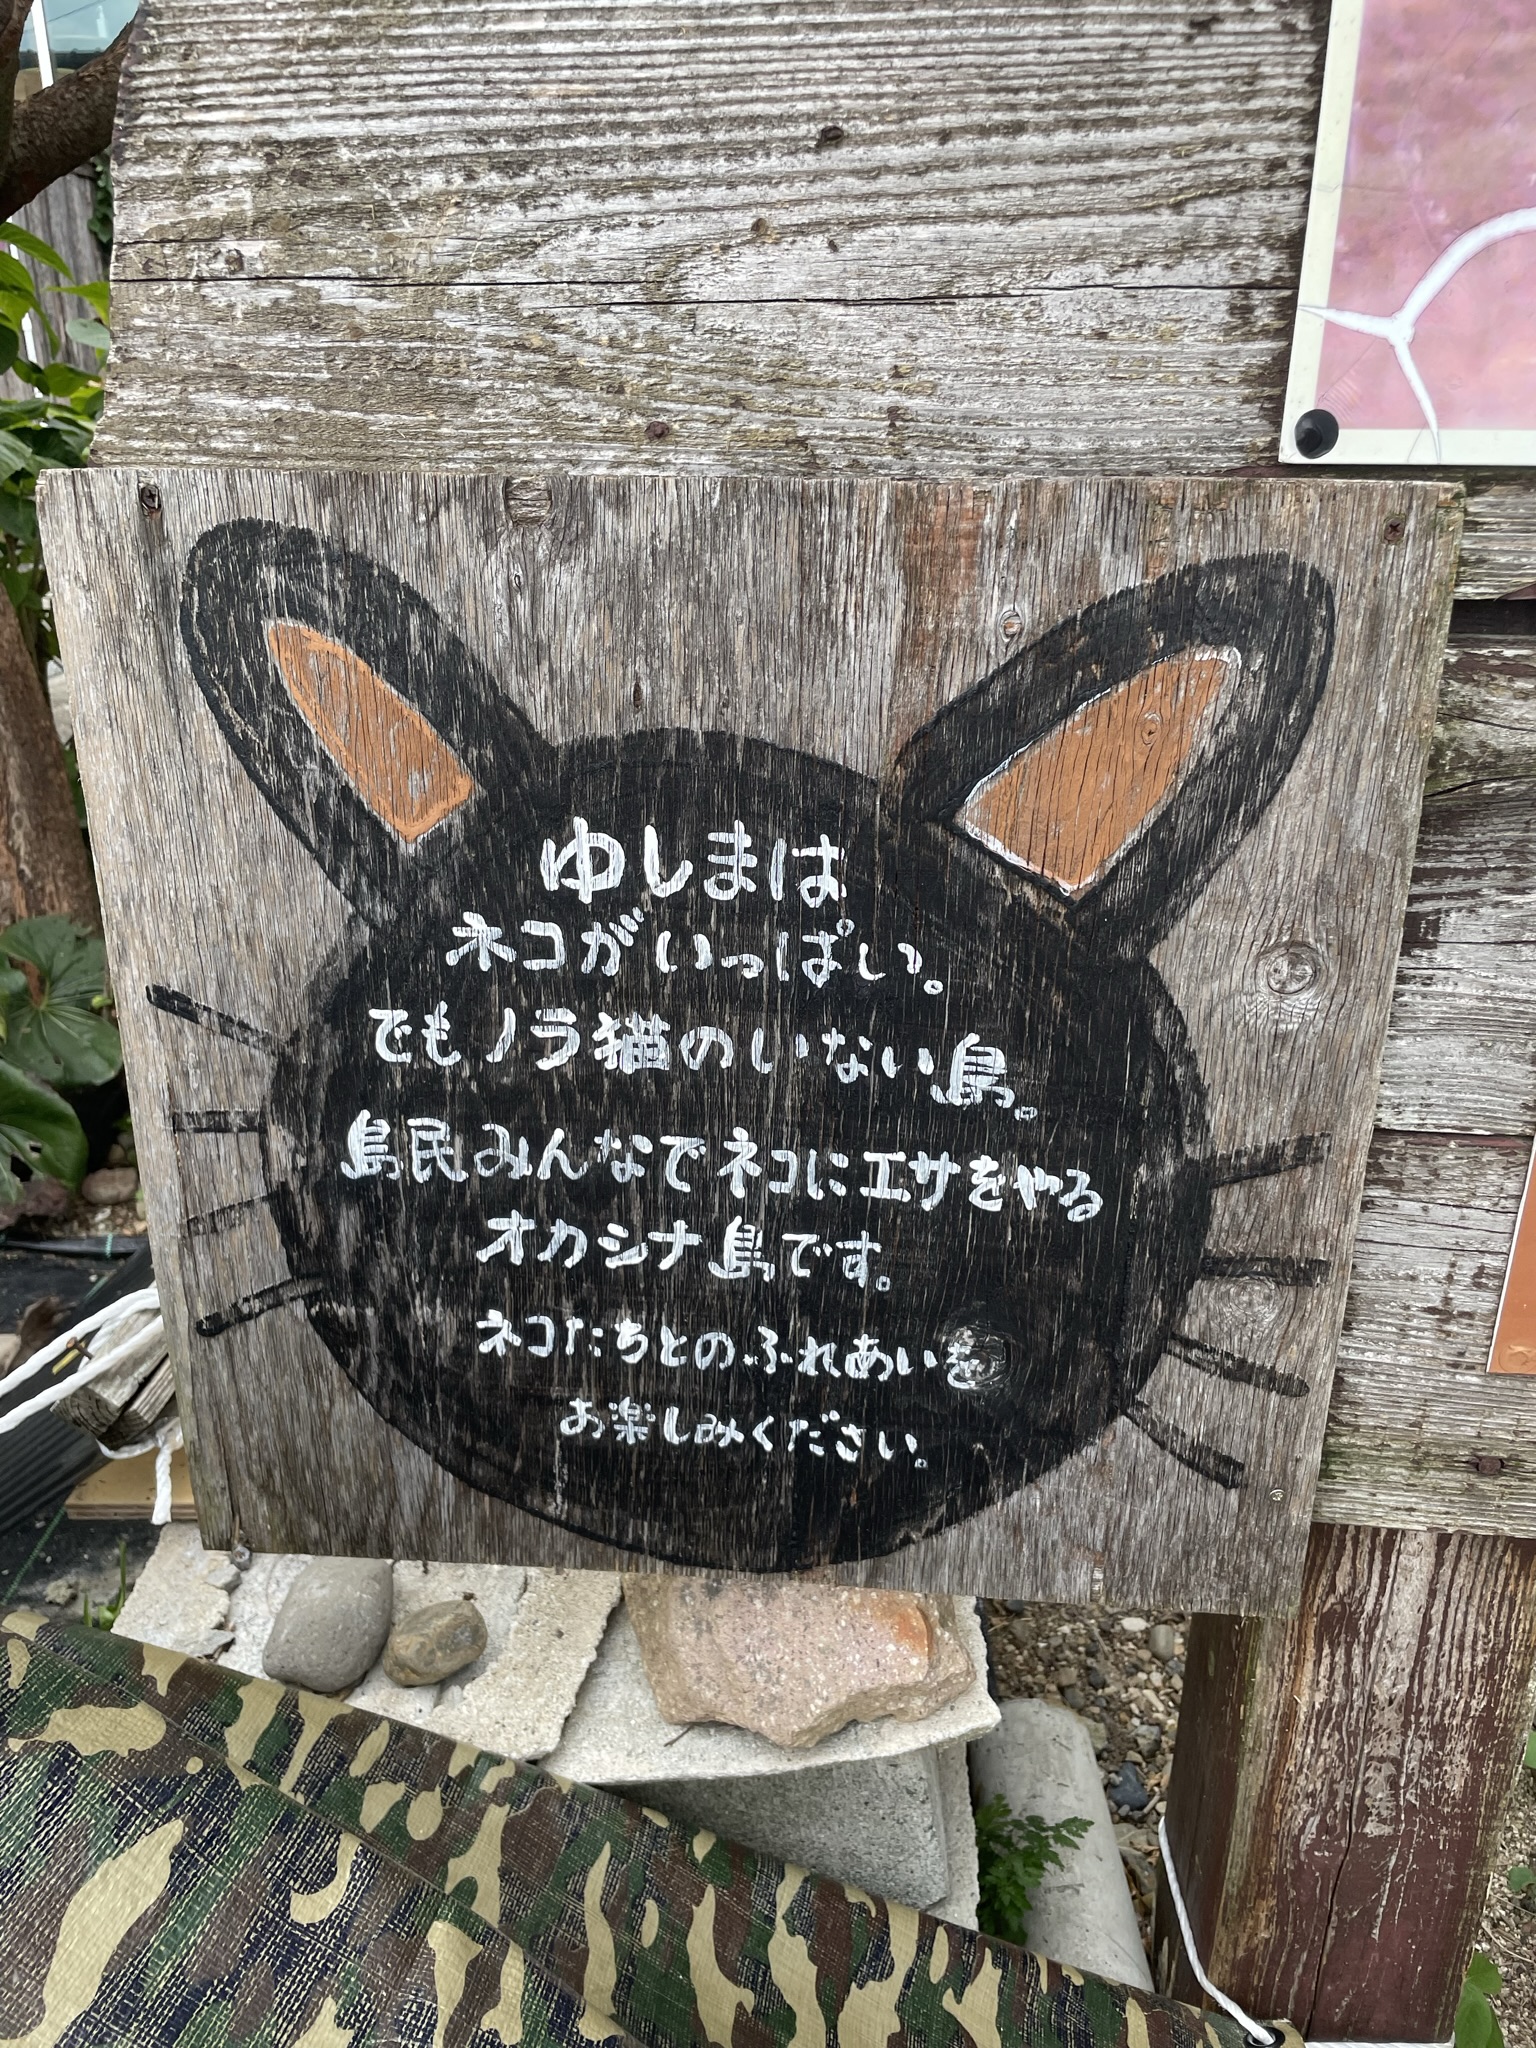 ゆしまは
ネコがいっぱい。
でもノラ猫のいない島。
島民みんなでネコにエサをやる
オカシナ島です。
ネコたちとのふれあいを
お楽しみください。